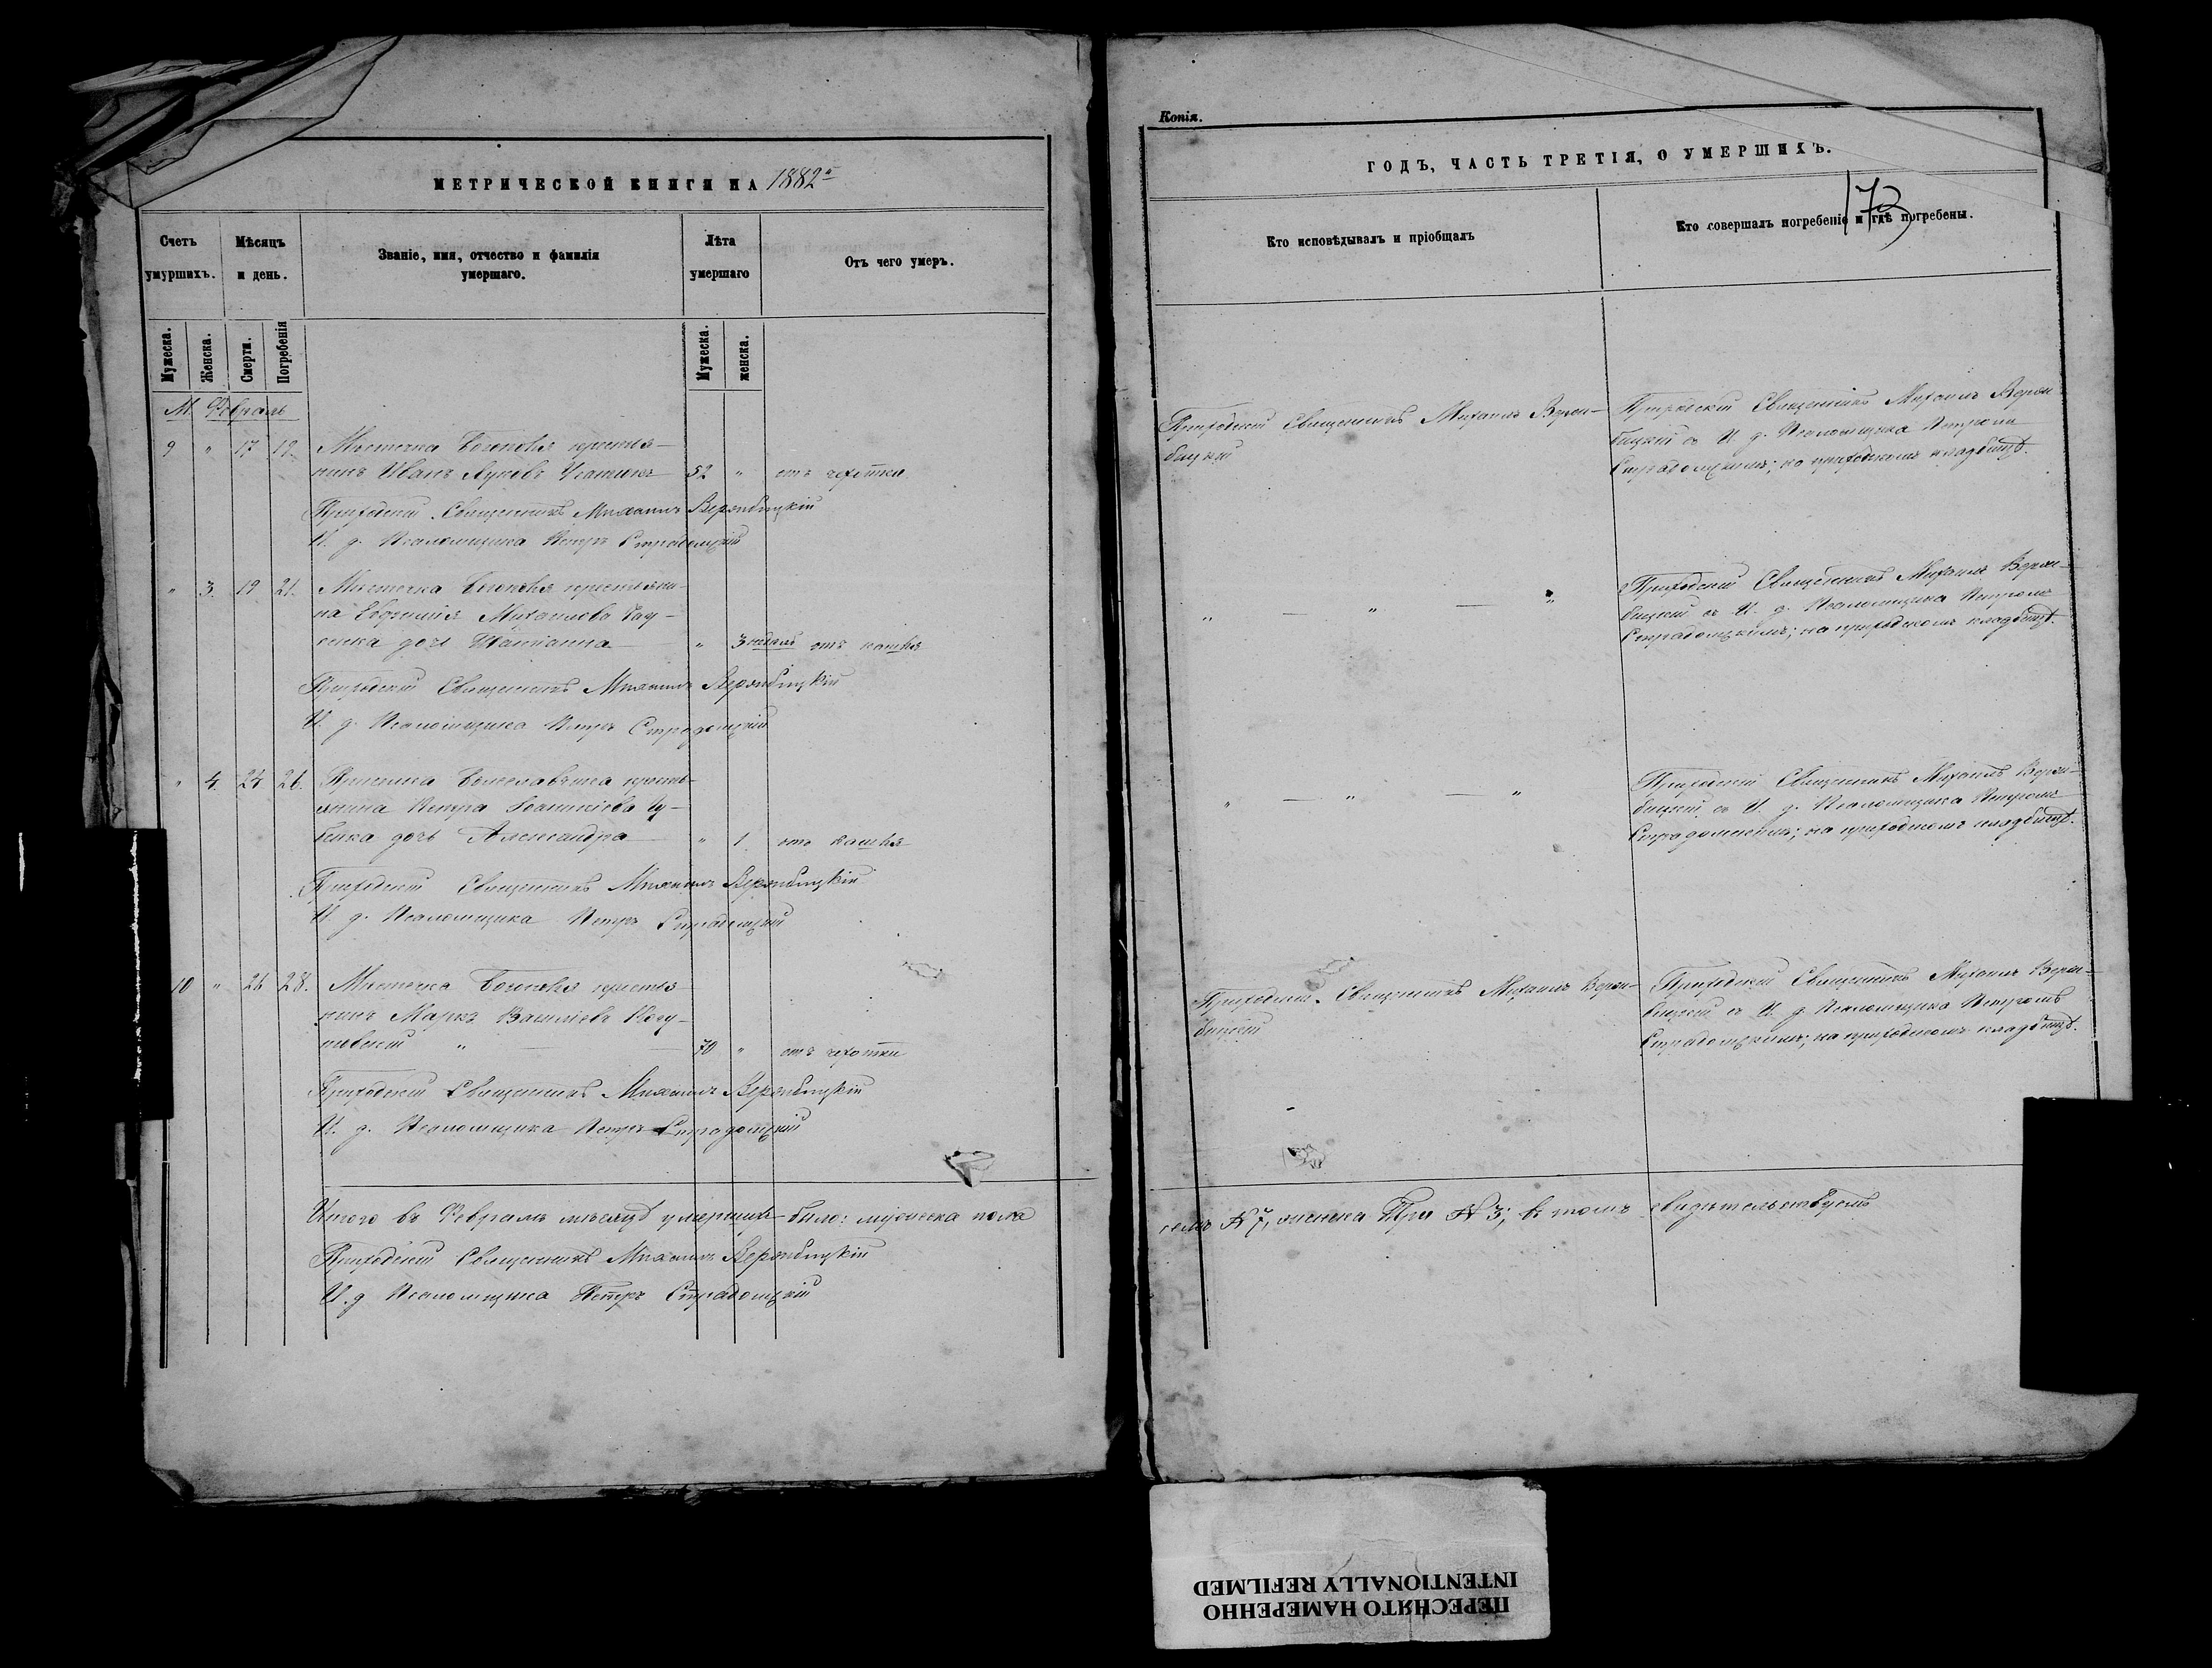 МЕТРИЧЕСКОЙ КНИГИ НА 1882й
Счетъ умуршихъ.
Мѣсяцъ и день.
Званіе, имя, отчество и фамилія умершаго.
Лѣта умершаго
Отъ чего умеръ.
Мужеска.
Женска.
Смерти.
Погребенія
Мужеска.
женска.
М. Февраль
9 " 17 19 Мѣстечка крестья-
нинъ Иванъ Луковъ 52 " отъ чехотки
Приходскій Священникъ Михаилъ Вержбицкій
И. д. Псаломщика Петръ Страдомскій
" 3. 19 21. Мѣстечка крестьяни-
на Михаилова
дочь " 3 недѣль отъ кашля
Приходскій Священникъ Михаилъ Вержбицкій
И. д. Псаломщика Петръ Страдомскій
" 4. 24 26. кресть-
янина Петра
дочь Александра " 1. отъ кашля
Приходскій Священникъ Михаилъ Вержбицкій
И. д. Псаломщика Петръ Страдомскій
10 " 26 28. Мѣстечка крестья-
нинъ Марко Василіевъ
" 70 " отъ чехотки
Приходскій Священникъ Михаилъ Вержбицкій
И. д. Псаломщика Петръ Страдомскій
Итого въ Февралѣ мѣсяцѣ умершихъ было: мужеска пола
Приходскій Священникъ Михаилъ Вержбицкій
И. д. Псаломщика Петръ Страдомскій
Копія.
ГОДЪ, ЧАСТЬ ТРЕТІЯ, О УМЕРШИХЪ.
173
Кто исповѣдывалъ и пріобщалъ
Кто совершалъ погребеніе и гдѣ погребены.
Приходскій Священникъ Михаилъ Верж-
бицкій
Приходскій Священникъ Михаилъ Верж-
бицкій съ И. д. Псаломщика Петромъ
Страдомскимъ; на приходскомъ кладбищѣ.
" — " — "
Приходскій Священникъ Михаилъ Верж-
бицкій съ И. д. Псаломщика Петромъ
Страдомскимъ; на приходскомъ кладбищѣ.
" — " — "
Приходскій Священникъ Михаилъ Верж-
бицкій съ И. д. Псаломщика Петромъ
Страдомскимъ; на приходскомъ кладбищѣ.
Приходскій Священникъ Михаилъ Верж-
бицкій
Приходскій Священникъ Михаилъ Верж-
бицкій съ И. д. Псаломщика Петромъ
Страдомскимъ; на приходскомъ кладбищѣ.
семь № 7, женска Три № 3; въ томъ свидѣтельствуемъ
ПЕРЕСНЯТО НАМЕРЕННО
INTENTIONALLY REFILMED